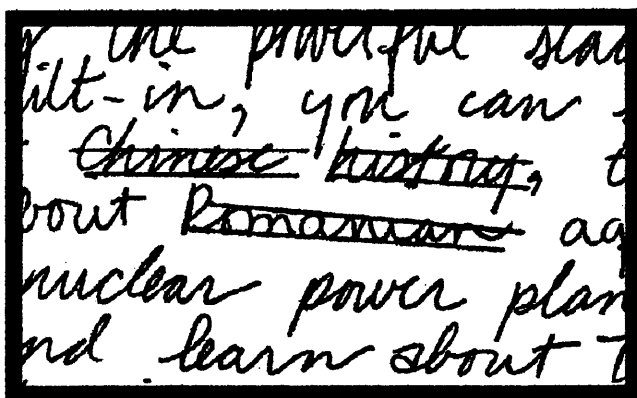 the powerful
ilt-in, you can
Chinese history,
bout Romanian
nuclear power plan
nd learn about